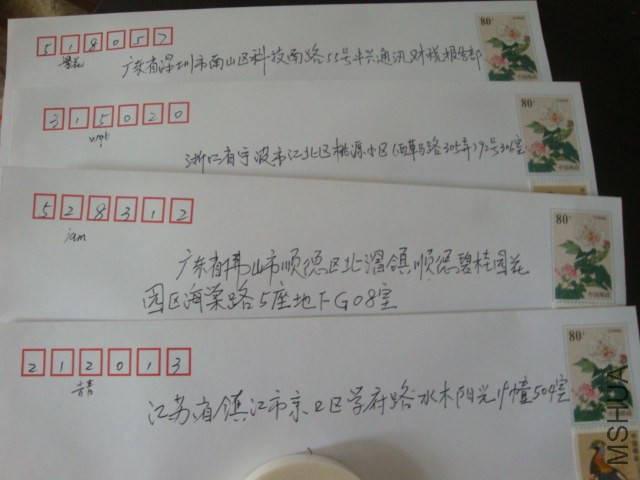 80分
518057
广东省深圳市南山区科技南路55号中兴通讯财税报告部
80分
315020
浙江省宁波市江北区桃源小区(西草马路305弄)92号306室
80分
528312
jam
广东省佛山市顺德区北滘镇顺德碧桂园花
园区海棠路5座地下G08室
中国邮政
80分
212013
江苏省镇江市京口区学府路水木阳光19幢504室
MSHUA